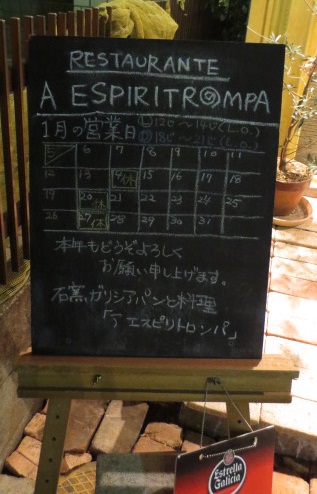 RESTAURANTE
A ESPIRITROMPA
1月の営業日
12:00~14:00(L.O.)
18:00~21:00(L.O.)
5 6 7 8 9 10 11
12 13 14休 15 16 17 18
19 20休 21 22 23 24 25
26 27休 28 29 30 31
本年もどうぞよろしく
お願い申し上げます。
石窯ガリシアパンと料理
「ア エスピリトロンパ」
Estrella
Galicia